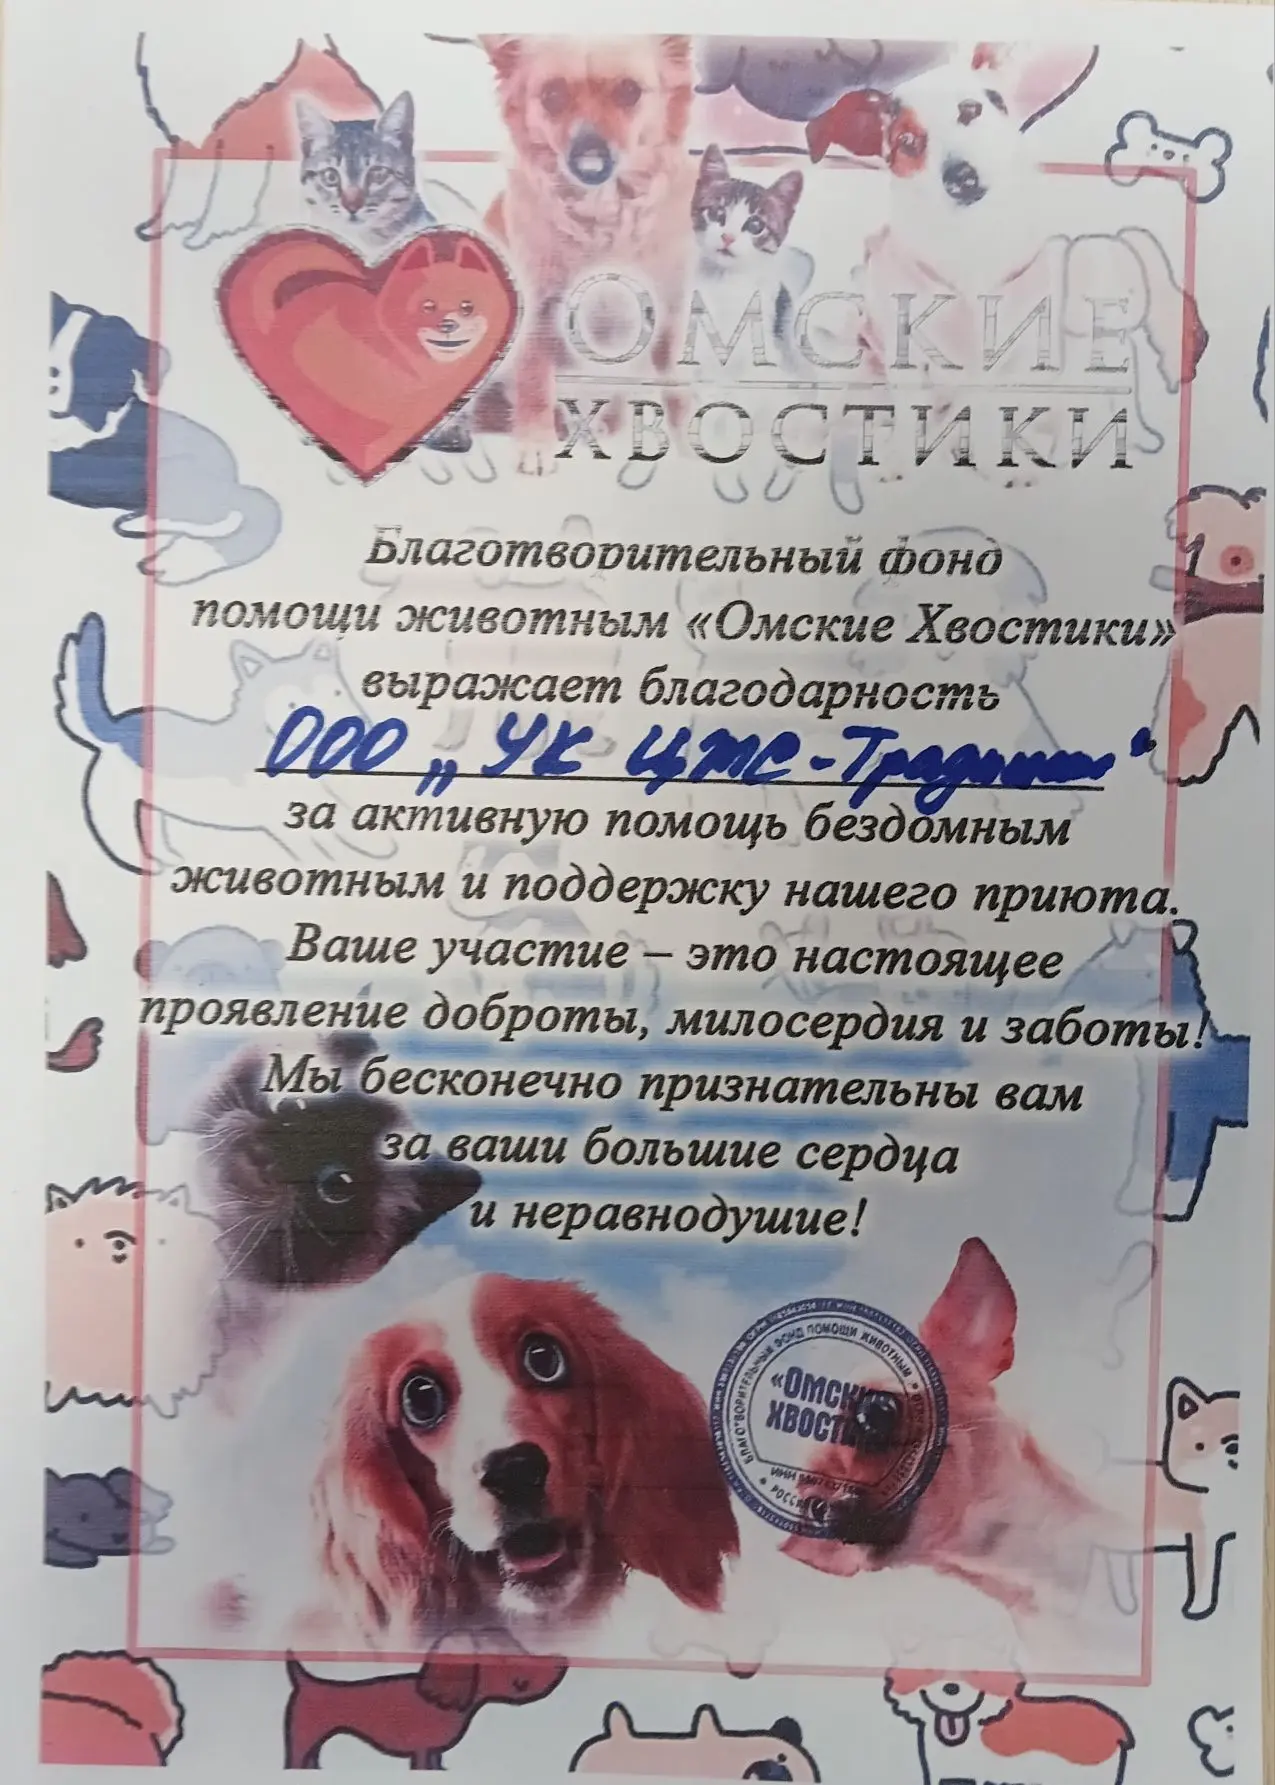 ОМСКИЕ
ХВОСТИКИ
Благотворительный фонд
помощи животным «Омские Хвостики»
выражает благодарность
ООО „УК ЦЖС-Традиции"
за активную помощь бездомным
животным и поддержку нашего приюта.
Ваше участие – это настоящее
проявление доброты, милосердия и заботы!
Мы бесконечно признательны вам
за ваши большие сердца
и неравнодушие!
БЛАГОТВОРИТЕЛЬНЫЙ ФОНД ПОМОЩИ ЖИВОТНЫМ
«ОМСКИЕ
ИНН